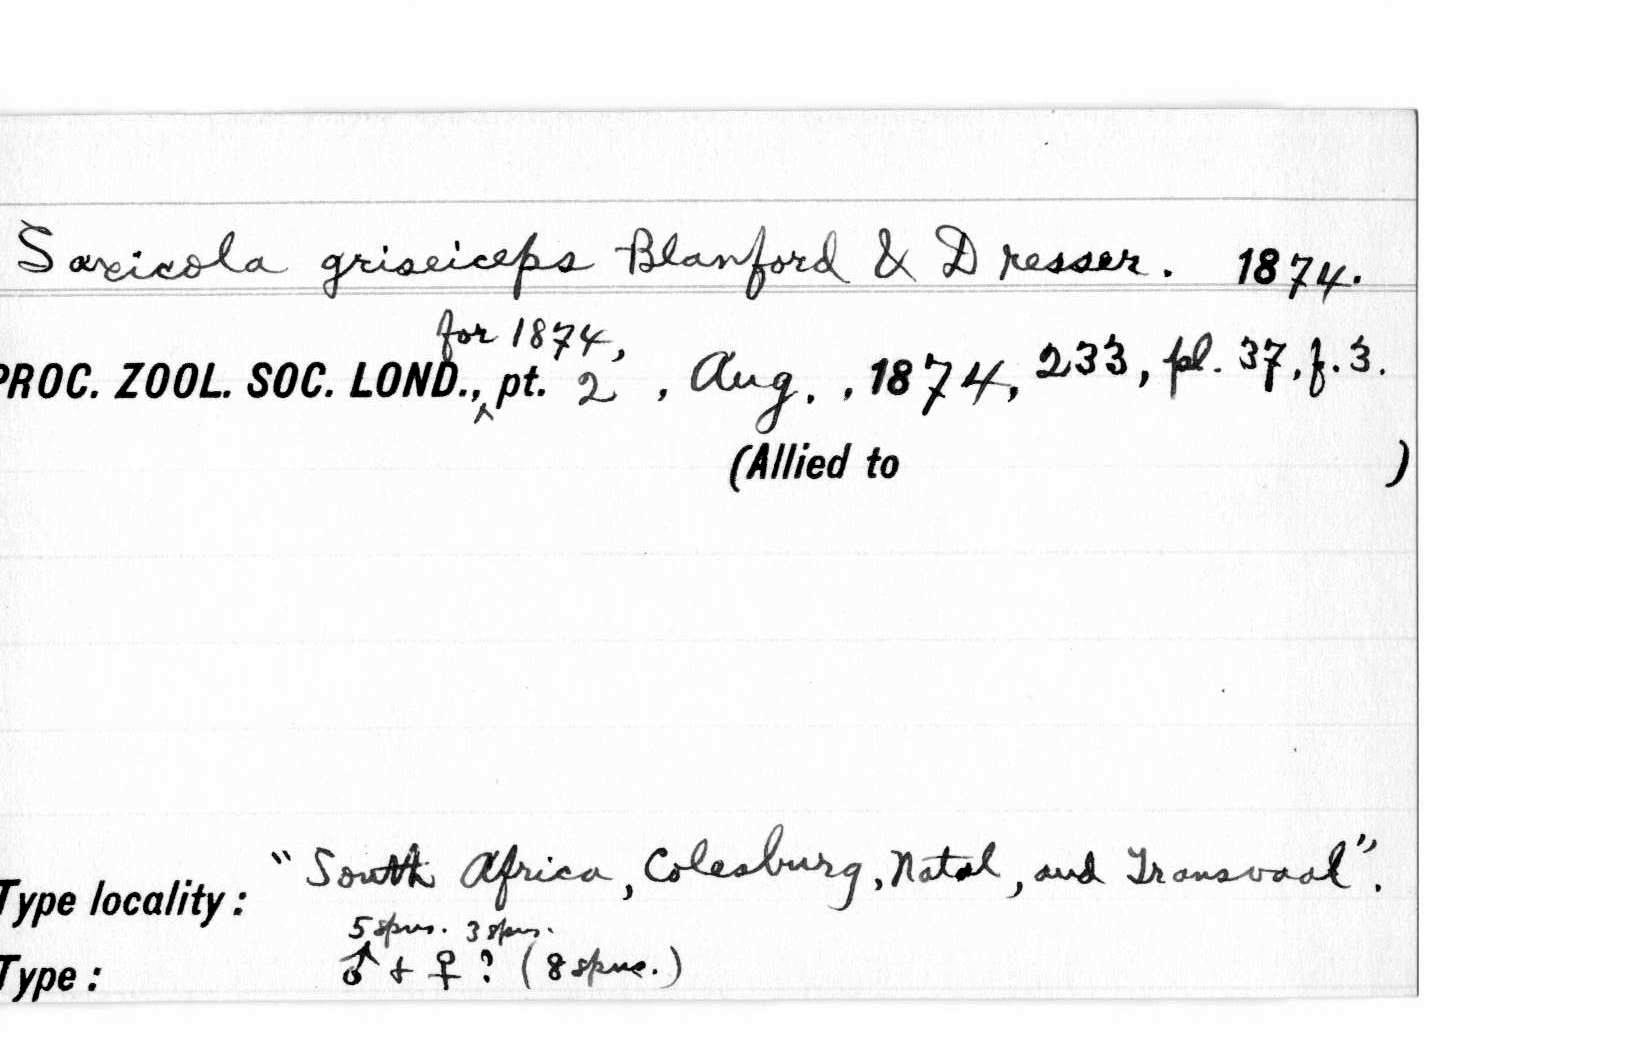 Saxicola griseiceps Blanford & Dresser. 1874.
for 1874,
PROC. ZOOL. SOC. LOND., ^ pt. 2, Aug., 1874, 233, pl. 37, f. 3.
(Allied to )
Type locality: "South Africa, Colesburg, Natal, and Transvaal".
5 spms. 3 spms.
Type: ♂ & ♀ ? (8 spms.)